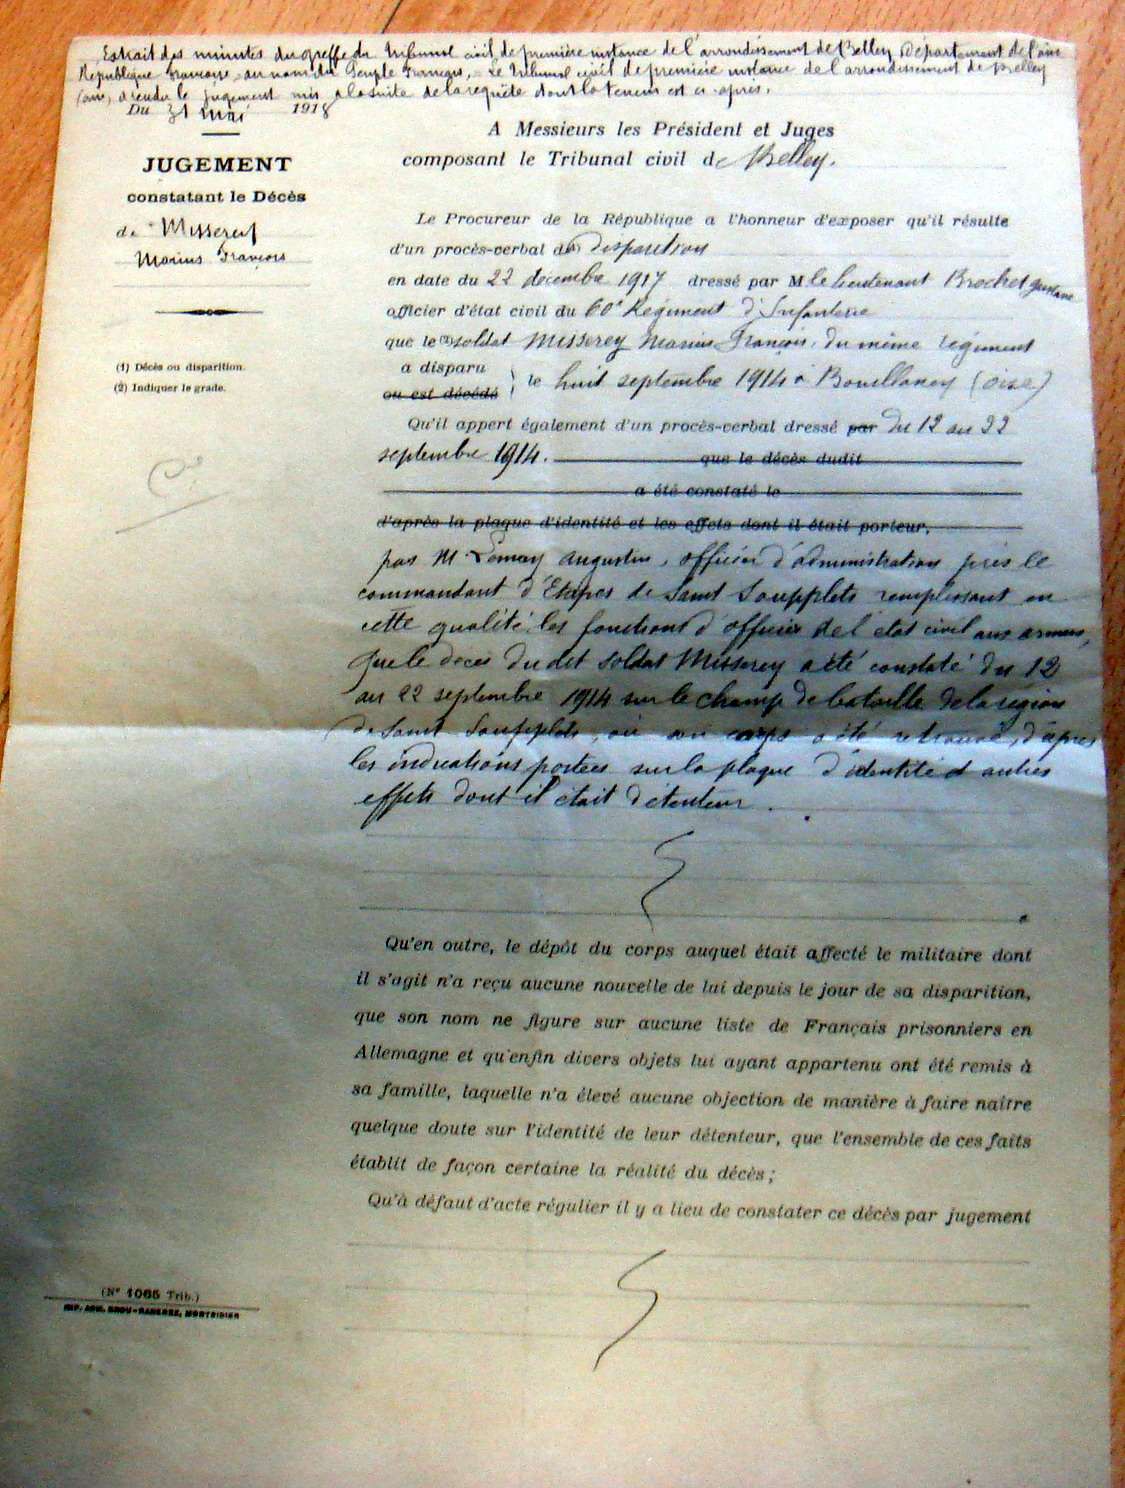 Extrait des minutes du greffe du Tribunal civil de première instance de l'arrondissement de Belley département de l'ain
République française, au nom du Peuple français, Le Tribunal civil de première instance de l'arrondissement de Belley
(ain) a rendu le jugement mis à la suite de la requête dont la teneur est ci-après.
Du 31 Mai 1918
JUGEMENT
constatant le Décès
de Misserey
Marius François
(1) Décès ou disparition.
(2) Indiquer le grade.
A Messieurs les Président et Juges
composant le Tribunal civil de Belley.
Le Procureur de la République a l'honneur d'exposer qu'il résulte
d'un procès-verbal de (1) disparition
en date du 22 décembre 1917 dressé par M le lieutenant Brochet gustave
officier d'état civil du 60e Régiment d'Infanterie
que le (2) soldat Misserey Marius François, du même régiment
a disparu
ou est décédé } le huit septembre 1914 à Bouillancy (oise)
Qu'il appert également d'un procès-verbal dressé par du 12 au 22
septembre 1914. que le décès dudit
a été constaté le
d'après la plaque d'identité et les effets dont il était porteur,
par M Lemay augustin, officier d'administration près le
commandant d'Etapes de Saint Soupplets remplissant en
cette qualité les fonctions d'officier de l'état civil aux armées,
que le décès du dit soldat Misserey a été constaté du 12
au 22 septembre 1914 sur le champ de bataille de la région
de Saint Soupplets, où son corps a été retrouvé, d'après
les indications portées sur la plaque d'identité et autres
effets dont il était détenteur.
Qu'en outre, le dépôt du corps auquel était affecté le militaire dont
il s'agit n'a reçu aucune nouvelle de lui depuis le jour de sa disparition,
que son nom ne figure sur aucune liste de Français prisonniers en
Allemagne et qu'enfin divers objets lui ayant appartenu ont été remis à
sa famille, laquelle n'a élevé aucune objection de manière à faire naître
quelque doute sur l'identité de leur détenteur, que l'ensemble de ces faits
établit de façon certaine la réalité du décès;
Qu'à défaut d'acte régulier il y a lieu de constater ce décès par jugement
(N° 1065 Trib.)
MONTDIDIER